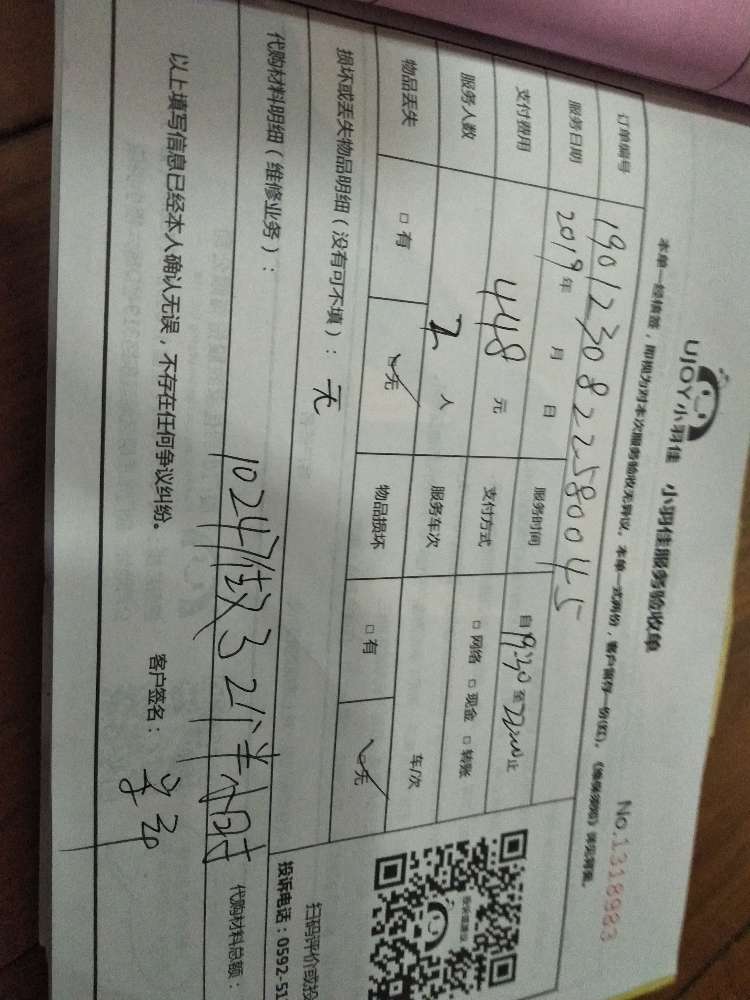 UJOY小羽佳 小羽佳服务验收单 No.1318983
本单一经核签，即视为对本次服务验收无异议。本单一式两份，客户留存一份(红)。《维保须知》详见背面。
订单编号 1901230822580045
服务日期 2019年 月 日 服务时间 自19:30至22:00止
支付费用 448元 支付方式 □网络 □现金 □转账
服务人数 2人 服务车次 车/次
物品丢失 □有 □无 物品损坏 □有 □无
损坏或丢失物品明细（没有可不填）：无
扫码评价或投
投诉电话：0592-51
代购材料明细（维修业务）：
代购材料总额：
1024做了2个半小时
以上填写信息已经本人确认无误，不存在任何争议纠纷。 客户签名：